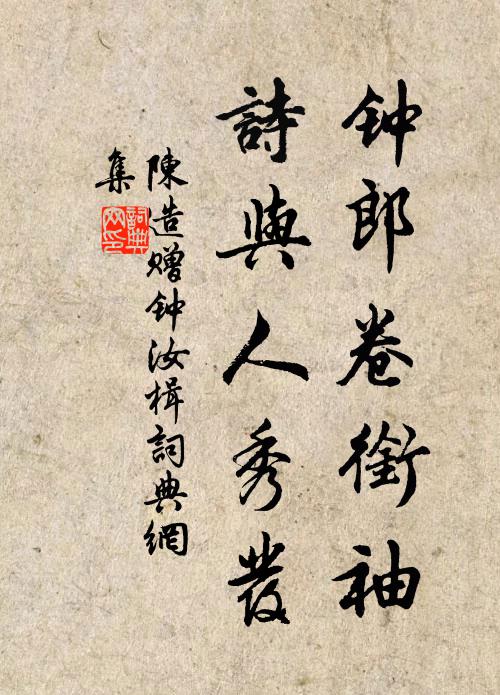 钟郎卷衔袖
詩與人秀發
陳造赠钟汝楫詞典網
集
詞典网印